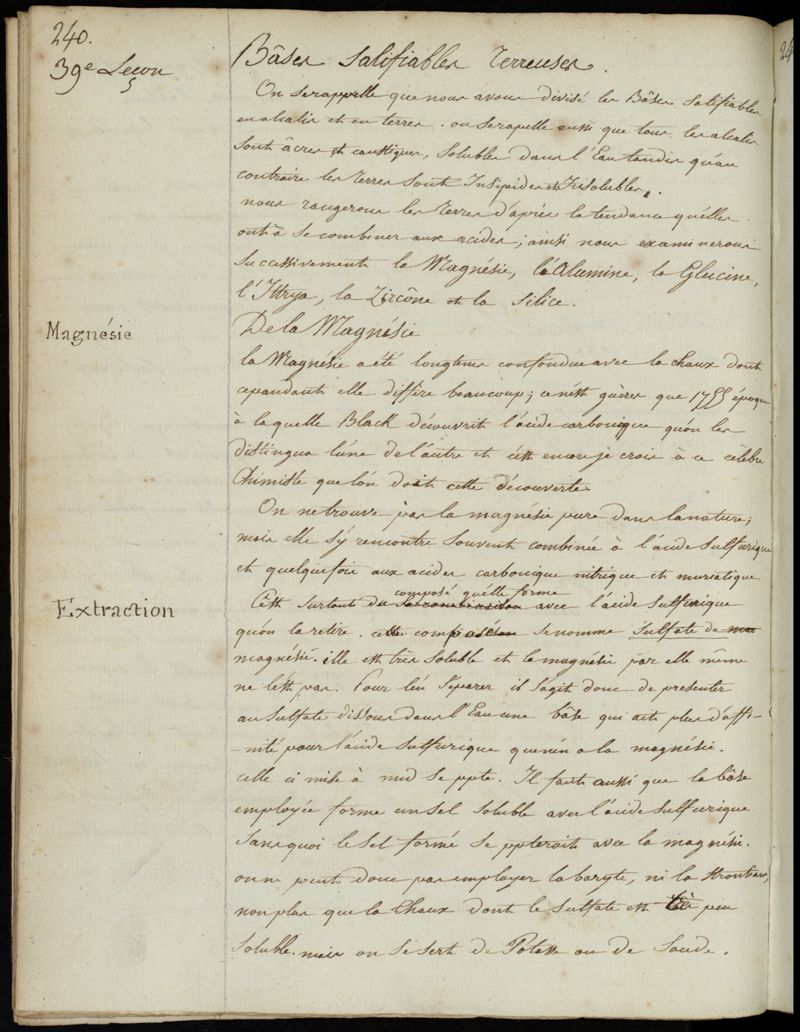 240.
39e Leçon
Bâses Salifiables Terreuses.
On se rappelle que nous avons divisé les Bâses Salifiables
en alcalis et en terres. on se rapelle aussi que tous les alcalis
sont âcres et caustiques, Solubles dans l'Eau tandis qu'au
contraire les terres sont Insipides et Insolubles.
nous rangerons les terres d'après la tendance qu'elles
ont à se combiner aux acides; ainsi nous examinerons
Successivement la Magnésie, l'Alumine, la Glucine,
l'Ittrya, la Zircône et la Silice.
Magnésie
De la Magnésie
la Magnésie a été longtems confondue avec la chaux dont
cependant elle diffère beaucoup; ce n'est guères que 1755 époque
à laquelle Black découvrit l'acide carbonique qu'on les
distingua l'une de l'autre et c'est encore je crois à ce célèbre
Chimiste que l'on doit cette découverte
On ne trouve pas la magnésie pure dans la nature;
mais elle s'y rencontre souvent combinée à l'acide Sulfurique
et quelquefois aux acides carbonique nitrique et muriatique
Extraction
composé qu'elle forme
C'est surtout du sa combinaison avec l'acide Sulfurique
qu'on la retire. ce composé se nomme Sulfate de ma
magnésie. elle est très Soluble et la magnésie par elle même
ne l'est pas. Pour l'en Séparer il s'agit donc de presenter
au Sulfate dissous dans l'Eau une bâse qui ait plus d'affi-
-nité pour l'acide Sulfurique que n'en a la magnésie.
celle ci mise à nud se ppte. Il faut aussi que la bâse
employée forme un Sel Soluble avec l'acide Sulfurique
Sans quoi le Sel formé se ppteroit avec la magnésie.
on ne peut donc pas employer la baryte, ni la Strontiane,
non plus que la Chaux dont le Sulfate est très peu
Soluble. mais on se sert de Potasse ou de Soude.